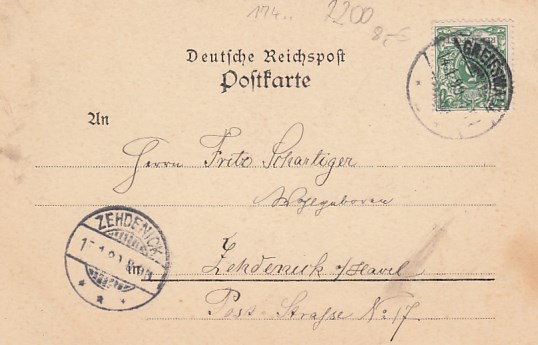 174..
2200
8,-€
GREIFSWALD
Deutsche Reichspost
Postkarte
An
Herrn Fritz Schartiger
Wohlgeboren
ZEHDENICK
Zehdenick a/Havel
Post-Straße No 17.